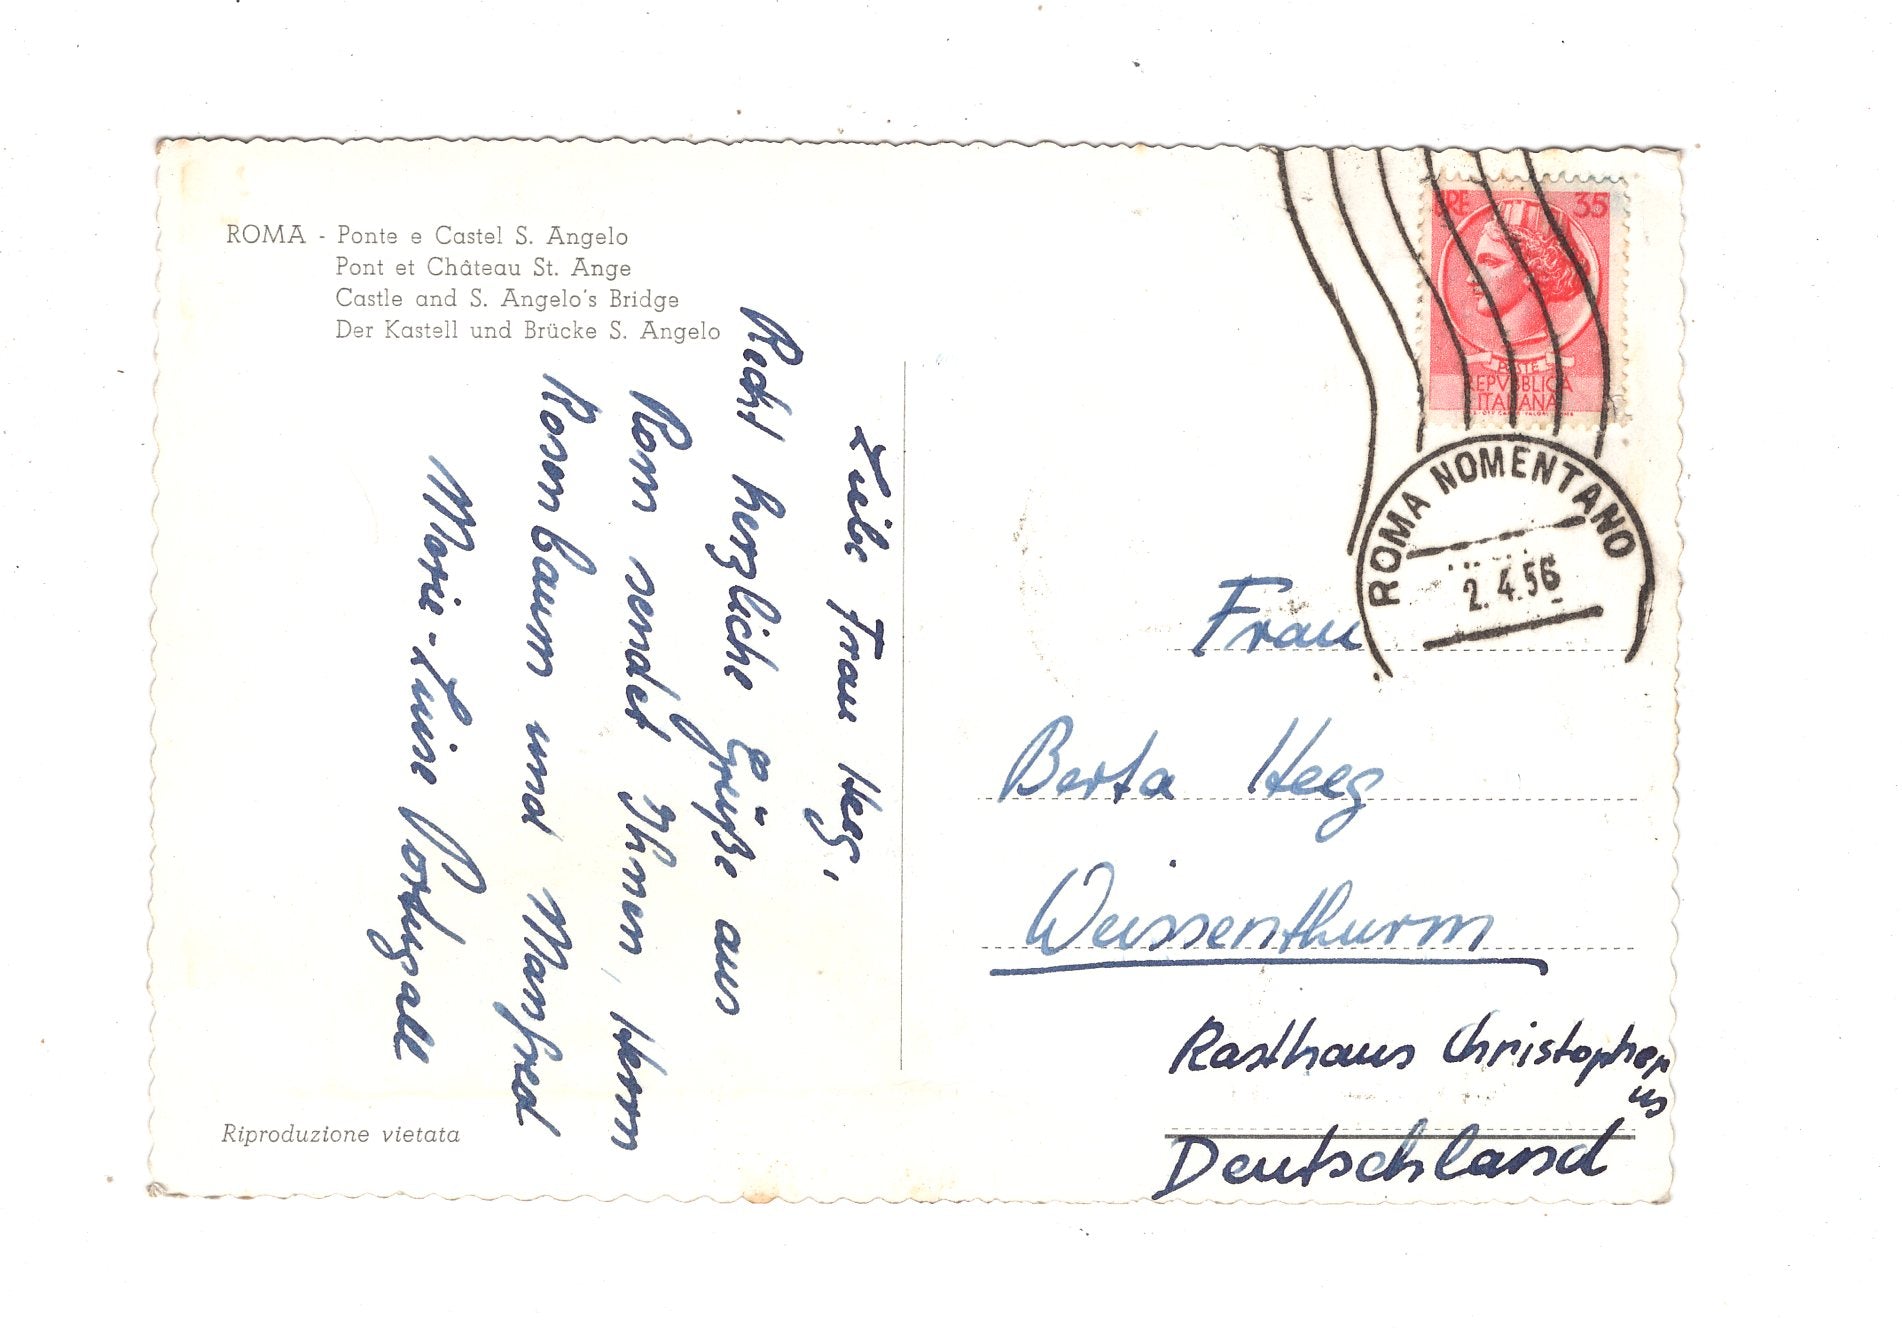 ROMA - Ponte e Castel S. Angelo
Pont et Château St. Ange
Castle and S. Angelo's Bridge
Der Kastell und Brücke S. Angelo
Liebe Frau Heeg,
Recht herzliche Grüße aus
Rom sendet Ihnen, Herrn
Rosenbaum und Manfred
Marie-Luise Portugall
Riproduzione vietata
LIRE 35
POSTE
REPVBBLICA
ITALIANA
ROMA NOMENTANO
2.4.56
Frau
Berta Heeg
Weissenthurm
Rasthaus Christopher
us
Deutschland